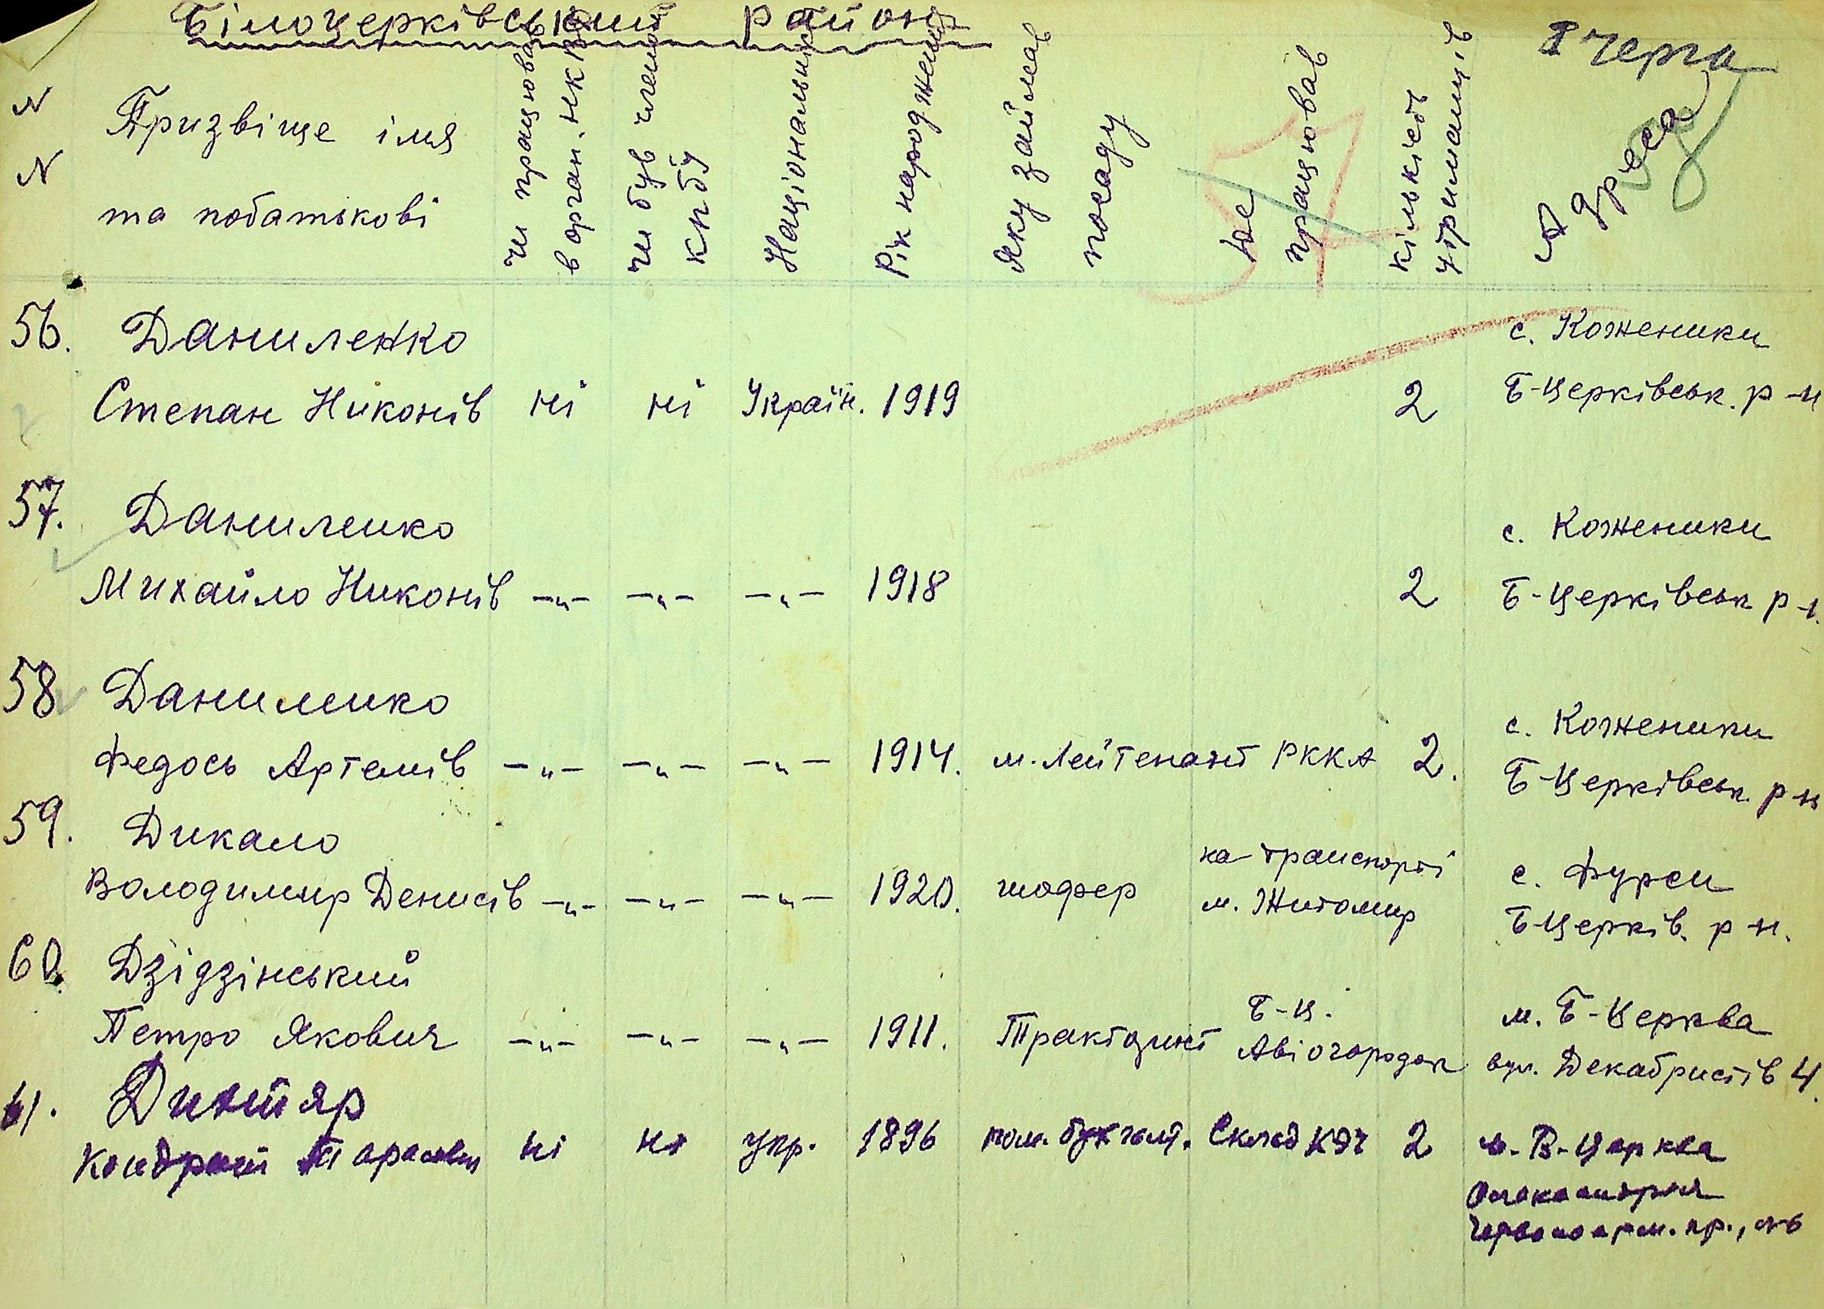 Білоцерківський район
І черга
58
N
N
Призвіще імя
та побатькові
чи працював
в орган. НКВС
чи був членом
КП(б)У
Національність
Рік народження
Яку займав
посаду
Де
працював
кількість
утриманців
Адреса
56. Даниленко с. Коженики
Степан Никонів ні ні Україн. 1919 2 Б-Церківськ. р-н
57. Даниленко с. Коженики
Михайло Никонів –"– –"– –"– 1918 2 Б-Церківськ р-н.
58 Даниленко с. Коженики
Федось Артемів –"– –"– –"– 1914. м. Лейтенант РККА 2. Б-Церківськ. р-н
59. Дикало на транспорті с. Фурси
Володимир Денисів –"– –"– –"– 1920. шофер м. Житомир Б Церків. р-н.
60. Дзідзінський Б-Ц. м. Б-Церква
Петро Якович –"– –"– –"– 1911. Авіогородок вул. Декабристів 4.
61.
Кондрат Тарасович ні ні укр. 1896 пом. бухгалт. Склад КЭЧ 2 м. Б-Церква
Червоноарм. пр.,